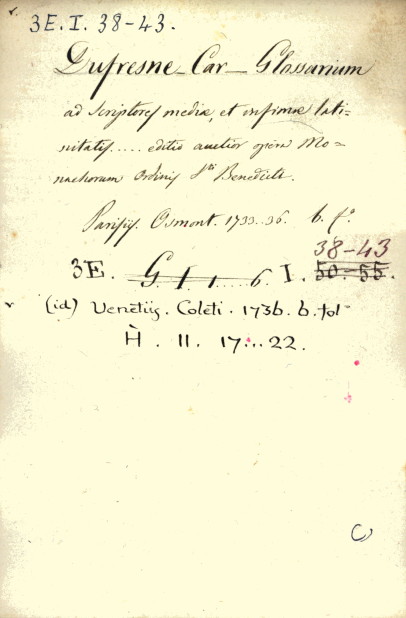 3E. I. 38-43.
Dufresne Car Glossarium
ad scriptores mediæ, et infimæ lati=
nitatis.... editio auctior opera Mo=
nachorum Ordinis Sti Benedicti.
Parisiis. Osmont. 1733..36. 6. fo
38-43
3E. G 1 1....6. I. 50-55.
(id) Venetiis. Coleti. 1736. 6. fol
H. 11. 17...22.